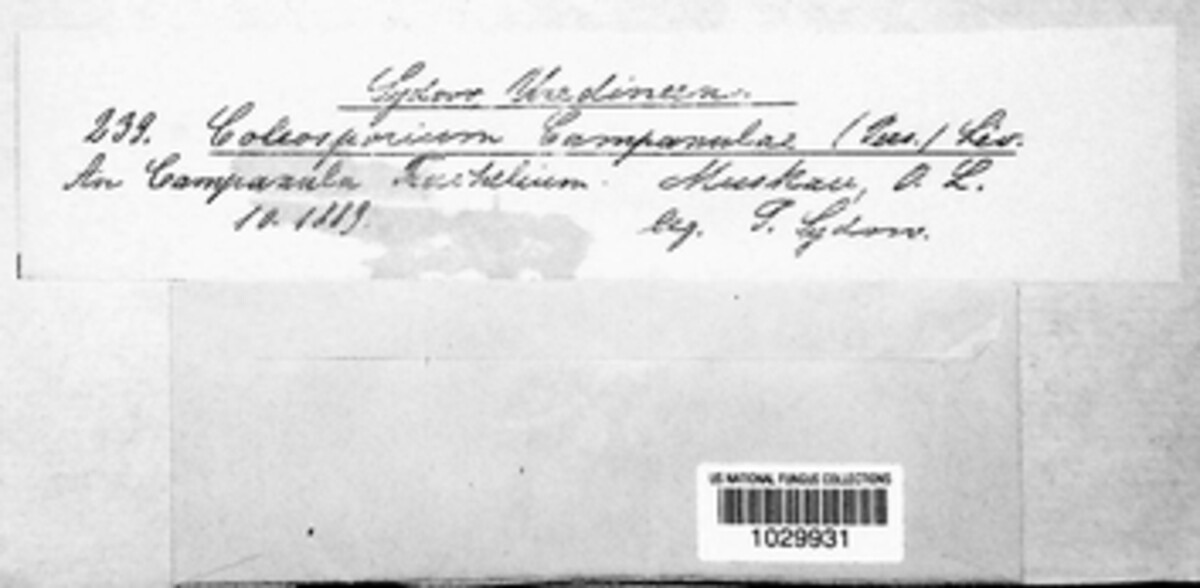 Sydow Uredineen.
239. Coleosporium Campanulae (Pers.) Lév.
An Campanula Trachelium. Muskau, O. L.
10. 1889. leg. P. Sydow.
US NATIONAL FUNGUS COLLECTIONS
1029931